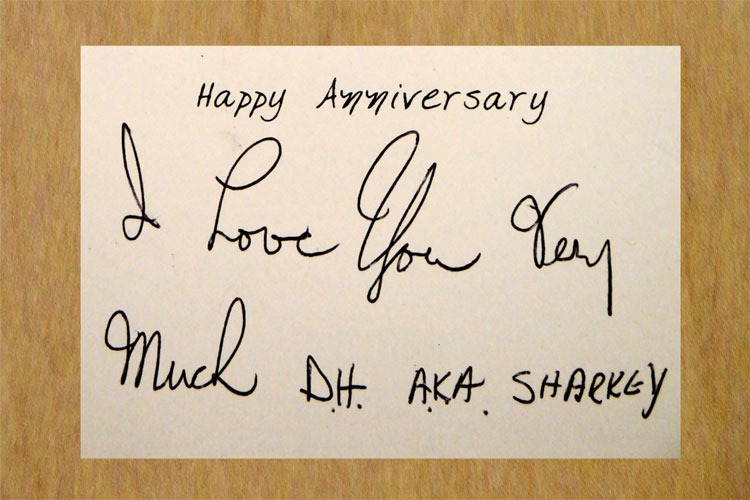 Happy Anniversary
I Love You Very
Much D.H. A.K.A. SHARKEY